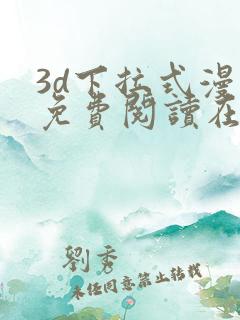 3d下拉式漫
免費閱讀在
劉秀
未经同意禁止转载